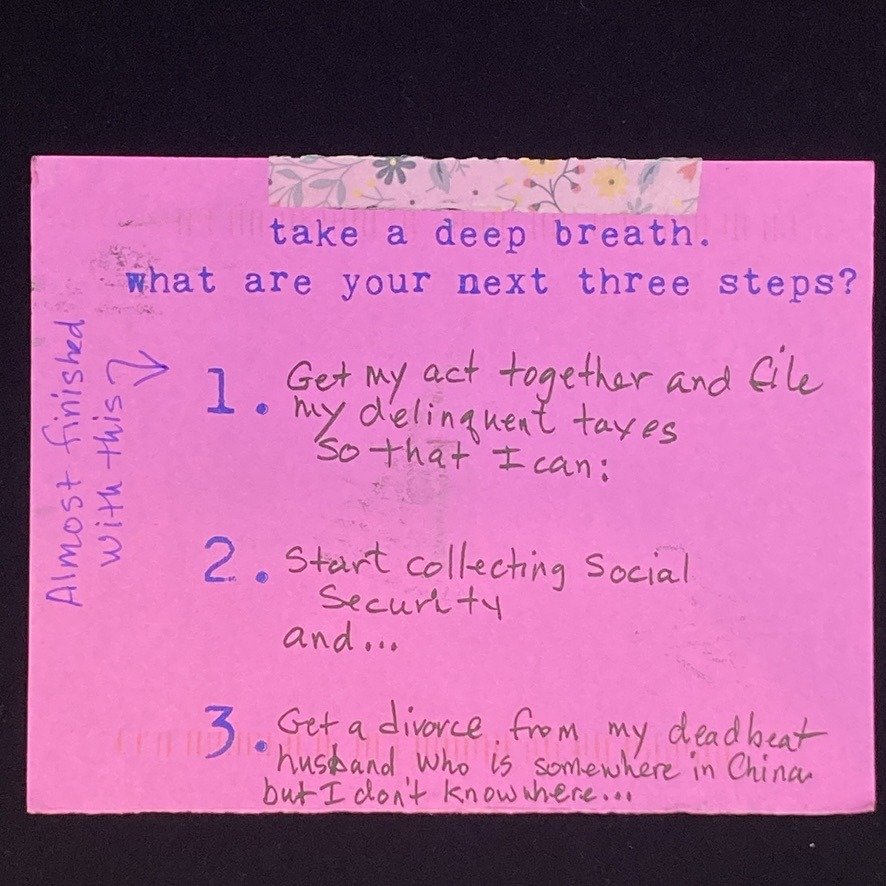 take a deep breath.
what are your next three steps?
Almost finished
with this
1. Get my act together and file
my delinquent taxes
so that I can:
2. Start collecting Social
Security
and...
3. Get a divorce from my deadbeat
husband who is somewhere in China
but I don't know where...